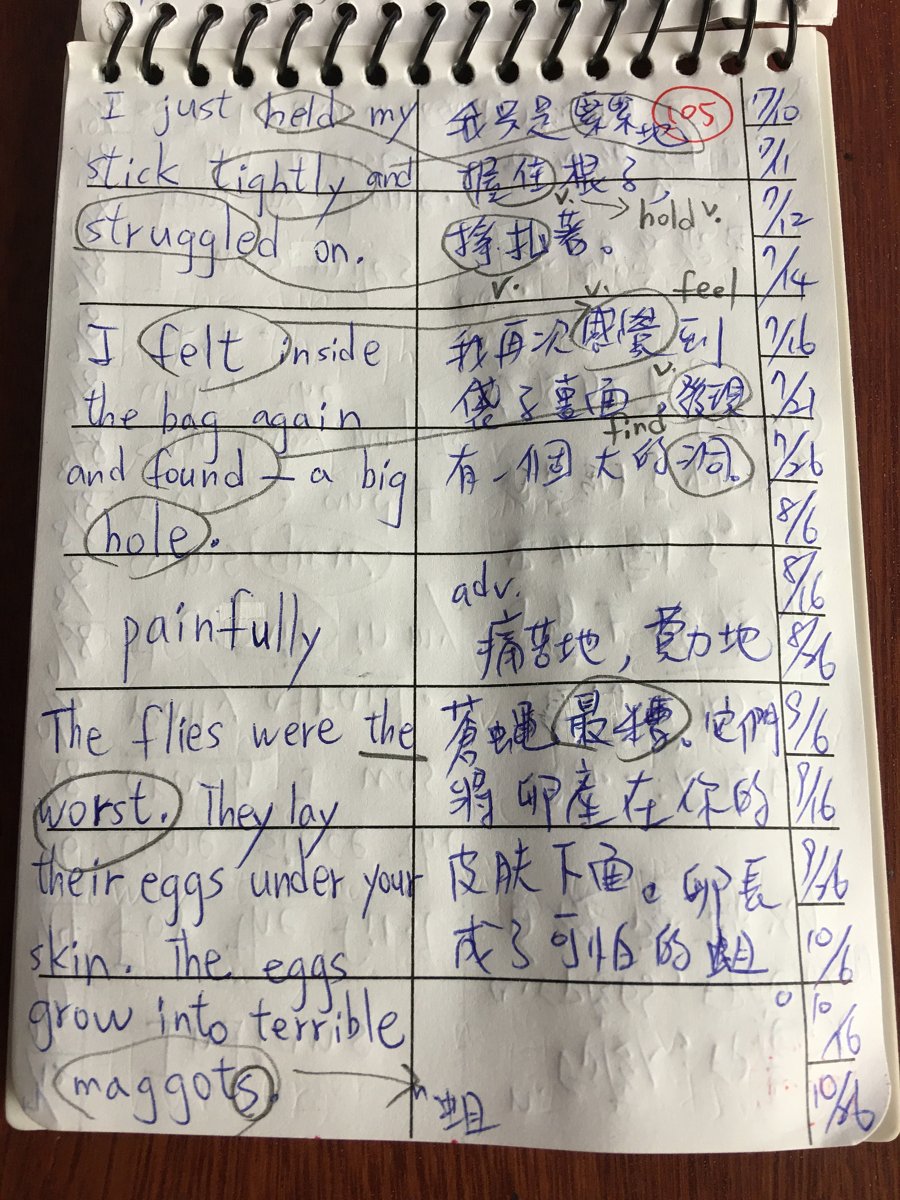 I just held my
stick tightly and
struggled on.
我只是緊緊地
握住棍子
v. → hold v.
掙扎著。
v.
105
I felt inside
the bag again
and found — a big
hole.
v. feel
我再次感覺到
v.
袋子裏面,發現
find
有一個大的洞。
painfully
adv.
痛苦地,費力地
The flies were the
worst. They lay
their eggs under your
skin. The eggs
grow into terrible
maggots.
蒼蠅最糟。它們
將卵產在你的
皮肤下面。卵長
成了可怕的蛆
。
n. 蛆
7/10
7/11
7/12
7/14
7/16
7/21
7/26
8/6
8/16
8/26
9/6
9/16
9/26
10/6
10/16
10/26